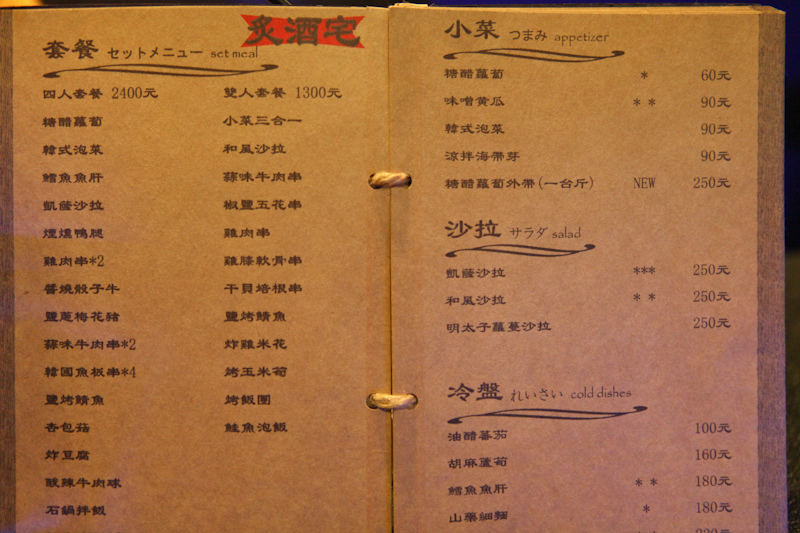 炙酒宅
套餐 セットメニュー set meal
四人套餐 2400元
糖醋蘿蔔
韓式泡菜
鱈魚魚肝
凱薩沙拉
煙燻鴨腿
雞肉串*2
醬燒骰子牛
鹽蔥梅花豬
蒜味牛肉串*2
韓國魚板串*4
鹽烤鯖魚
杏包菇
炸豆腐
酸辣牛肉球
石鍋拌飯
雙人套餐 1300元
小菜三合一
和風沙拉
蒜味牛肉串
椒鹽五花串
雞肉串
雞膝軟骨串
干貝培根串
鹽烤鯖魚
炸雞米花
烤玉米筍
烤飯團
鮭魚泡飯
小菜 つまみ appetizer
糖醋蘿蔔 * 60元
味噌黃瓜 * * 90元
韓式泡菜 90元
涼拌海帶芽 90元
糖醋蘿蔔外帶(一台斤) NEW 250元
沙拉 サラダ salad
凱薩沙拉 *** 250元
和風沙拉 * * 250元
明太子蘿蔓沙拉 250元
冷盤 れいさい cold dishes
油醋蕃茄 100元
胡麻蘆筍 160元
鱈魚魚肝 * * 180元
山藥細麵 * 180元